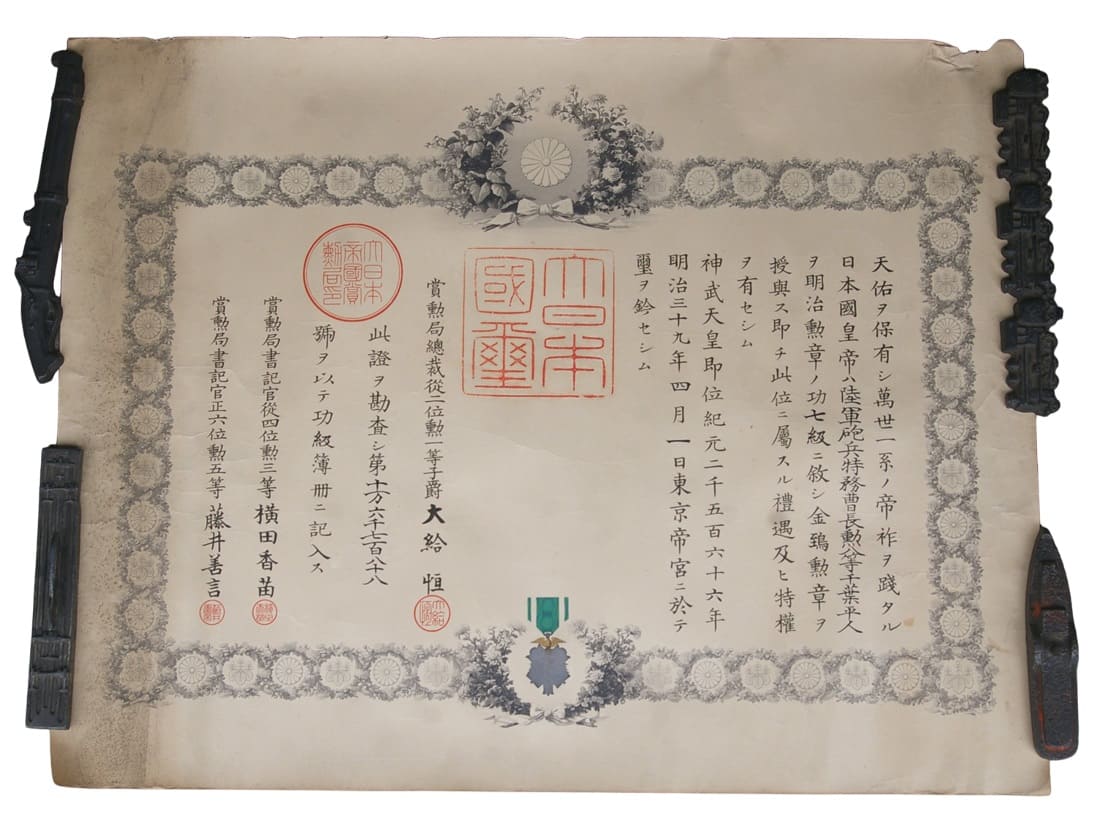 天佑ヲ保有シ萬世一系ノ帝祚ヲ踐タル
日本國皇帝ハ陸軍砲兵特務曹長勲八等千葉平人
ヲ明治勲章ノ功七級ニ敘シ金鵄勲章ヲ
授與ス即チ此位ニ屬スル禮遇及ヒ特權
ヲ有セシム
神武天皇即位紀元二千五百六十六年
明治三十九年四月一日東京帝宮ニ於テ
璽ヲ鈐セシム
大日本
國璽
賞勲局總裁從二位勲一等子爵大給恒
此證ヲ勘査シ第十六万六千七百八十八
號ヲ以テ功級簿冊ニ記入ス
大日本
帝國賞
勲局印
賞勲局書記官從四位勲三等横田香苗
賞勲局書記官正六位勲五等藤井善言